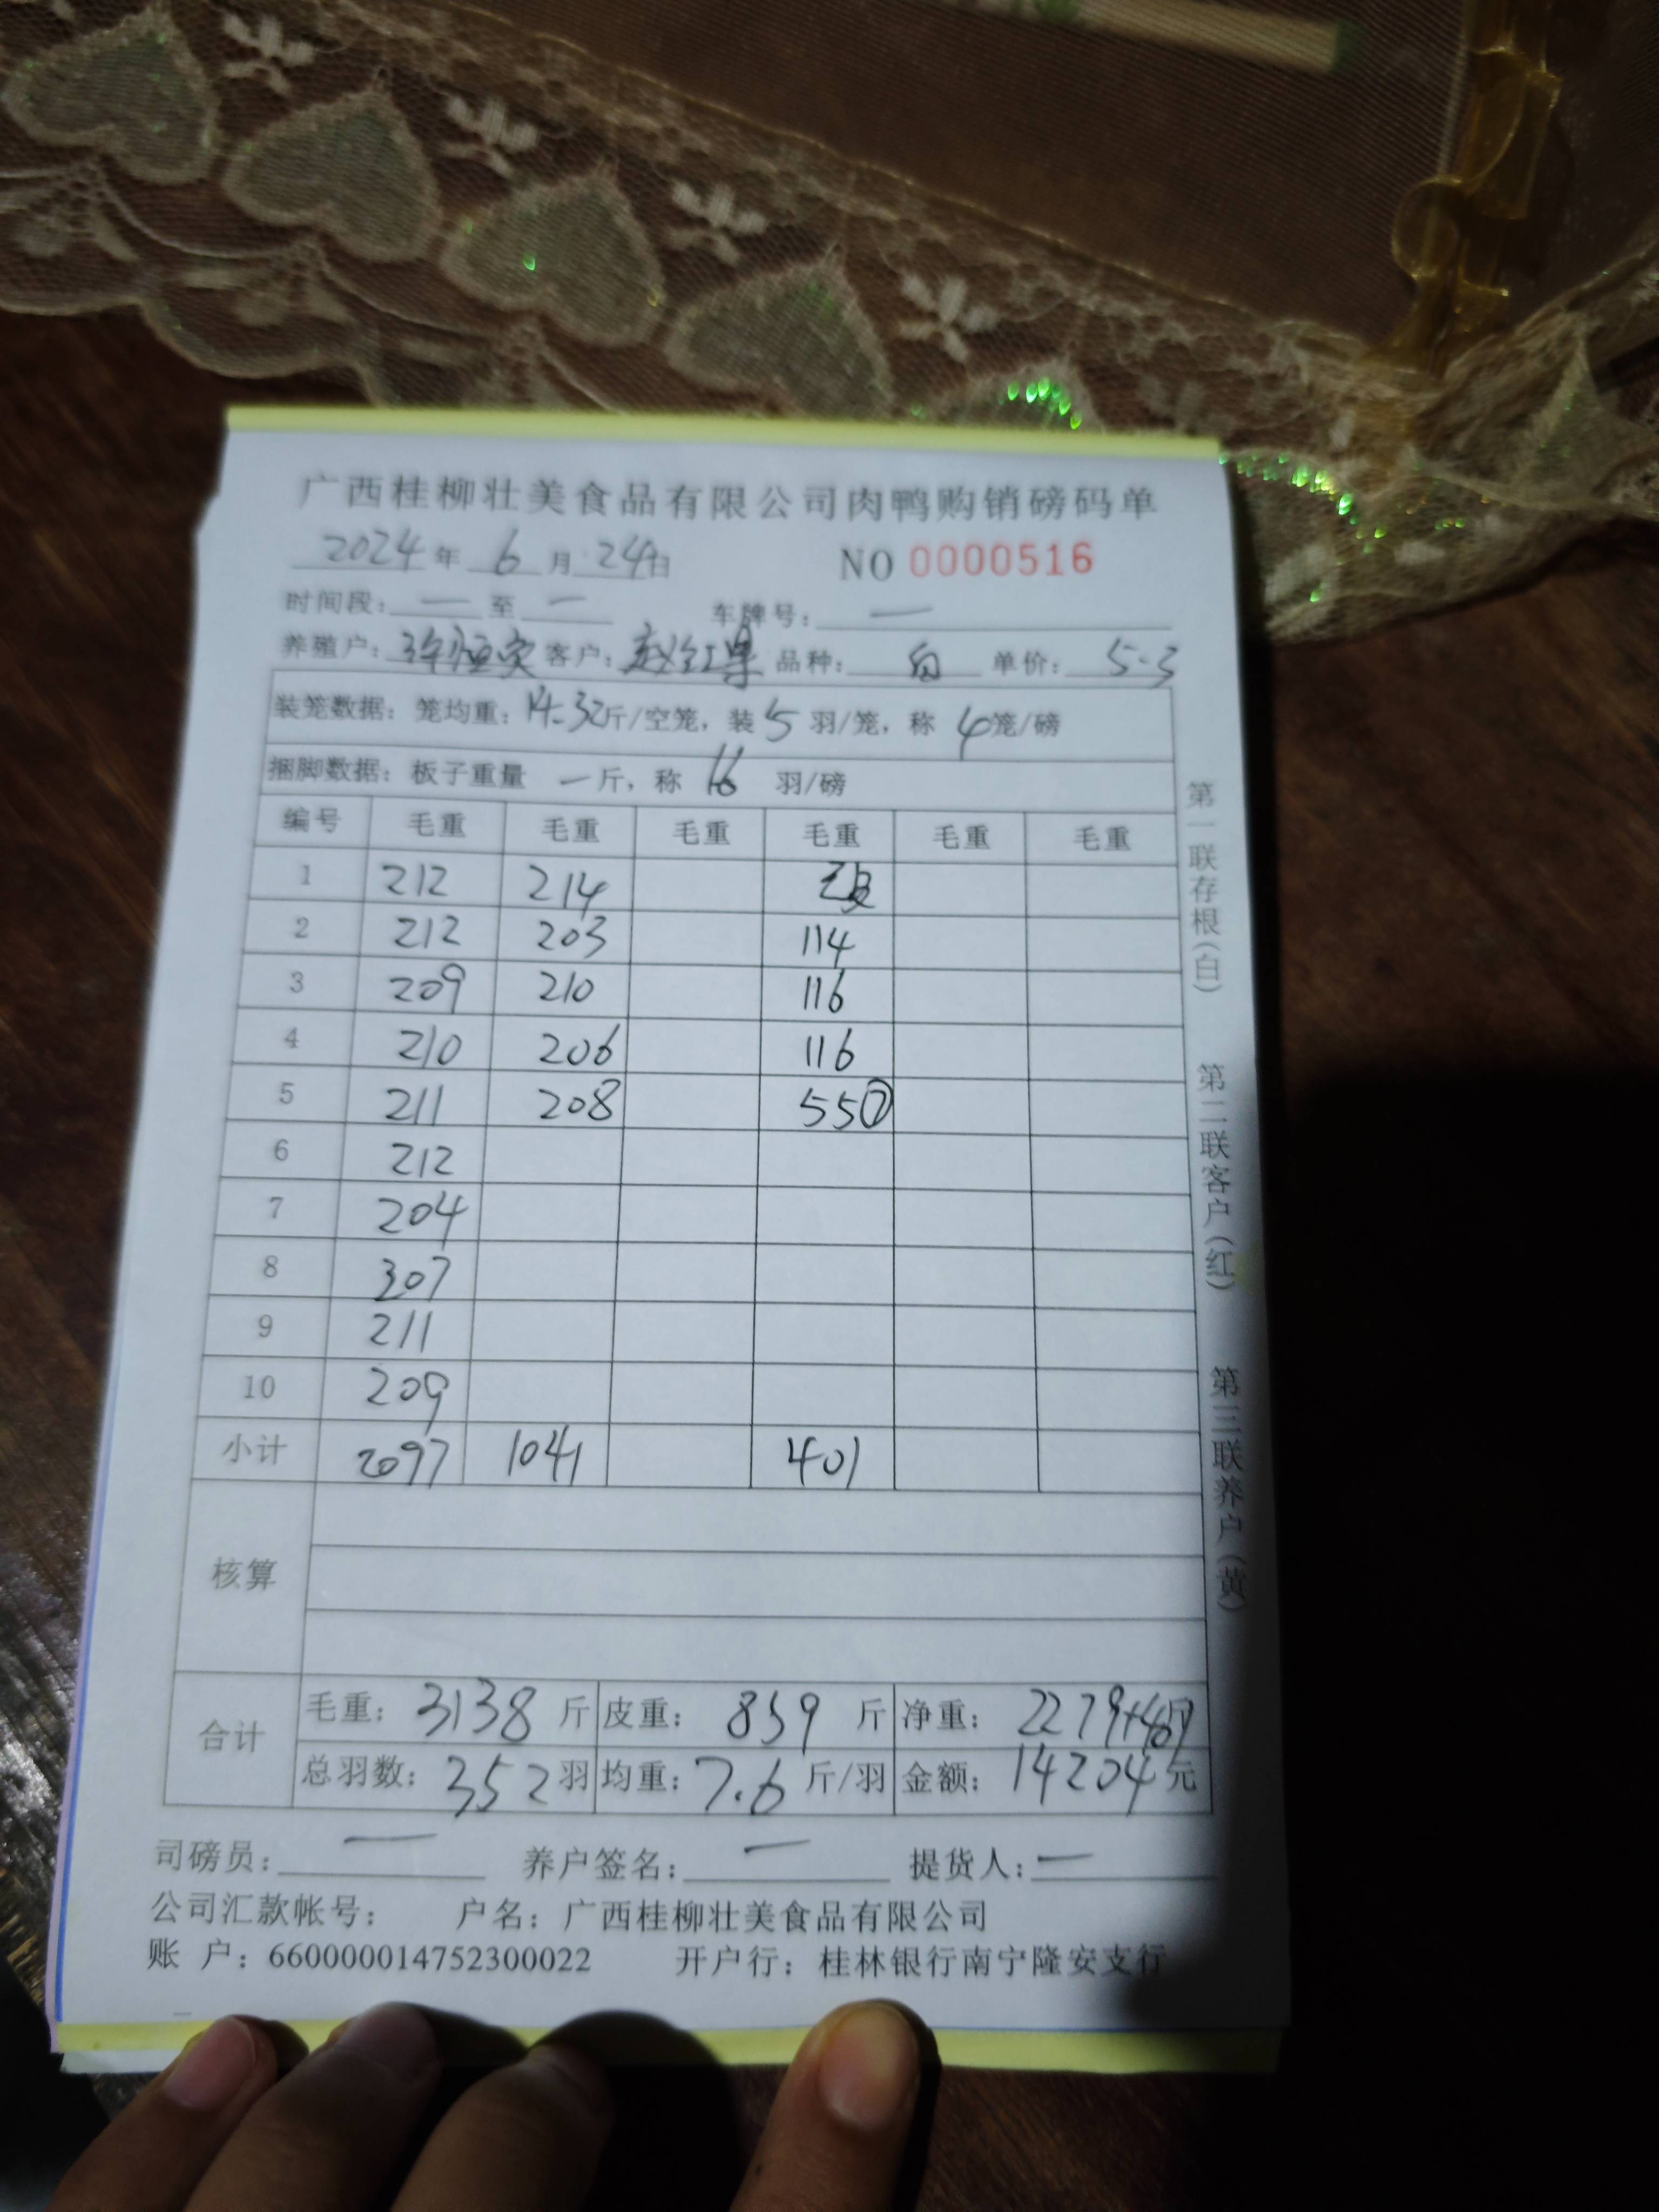 广西桂柳壮美食品有限公司肉鸭购销磅码单
2024年 6月 24日 NO 0000516
时间段：一至一 车牌号：一
养殖户： 客户： 品种：白 单价：5-3
装笼数据：笼均重：14.32斤/空笼，装5羽/笼，称4笼/磅
捆脚数据：板子重量 一斤，称 16 羽/磅
编号 毛重 毛重 毛重 毛重 毛重 毛重
1 212 214
2 212 203 114
3 209 210 116
4 210 206 116
5 211 208 55⑦
6 212
7 204
8 307
9 211
10 209
小计 2097 1041 401
核算
合计 毛重：3138斤 皮重：859斤 净重：2279+401
总羽数：352羽 均重：7.6斤/羽 金额：14204元
司磅员：一 养户签名：一 提货人：一
公司汇款帐号： 户名：广西桂柳壮美食品有限公司
账 户：660000014752300022 开户行：桂林银行南宁隆安支行
第一联存根（白） 第二联客户（红） 第三联养户（黄）